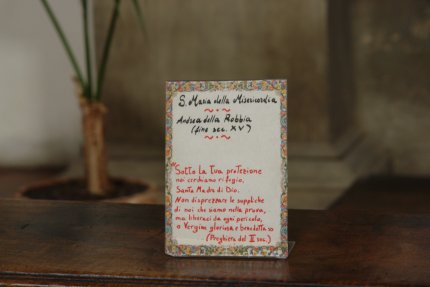 S. Maria della Misericordia
Andrea della Robbia
(fine sec. XV)
"Sotto la Tua protezione
noi cerchiamo rifugio,
Santa Madre di Dio.
Non disprezzare le suppliche
di noi che siamo nella prova,
ma liberaci da ogni pericolo,
o Vergine gloriosa e benedetta.
(Preghiera del II sec.)